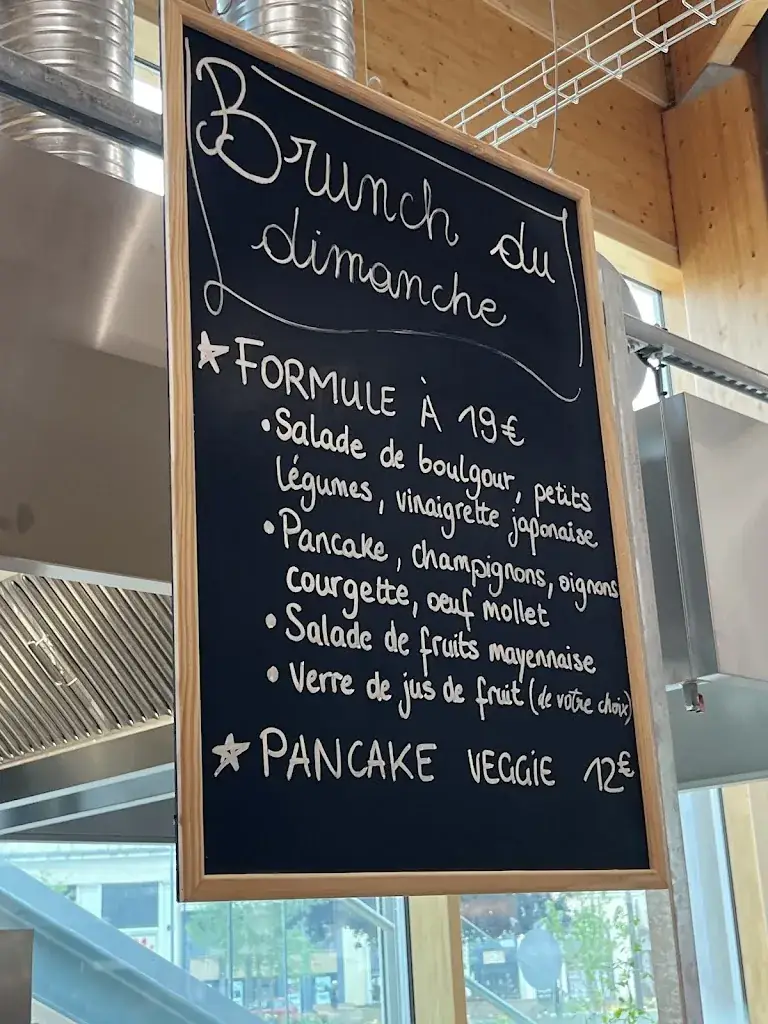 Brunch du
dimanche
FORMULE À 19€
• Salade de boulgour, petits
légumes, vinaigrette japonaise
• Pancake, champignons, oignons
courgette, oeuf mollet
• Salade de fruits mayennaise
• Verre de jus de fruit (de votre choix)
PANCAKE VEGGIE 12€